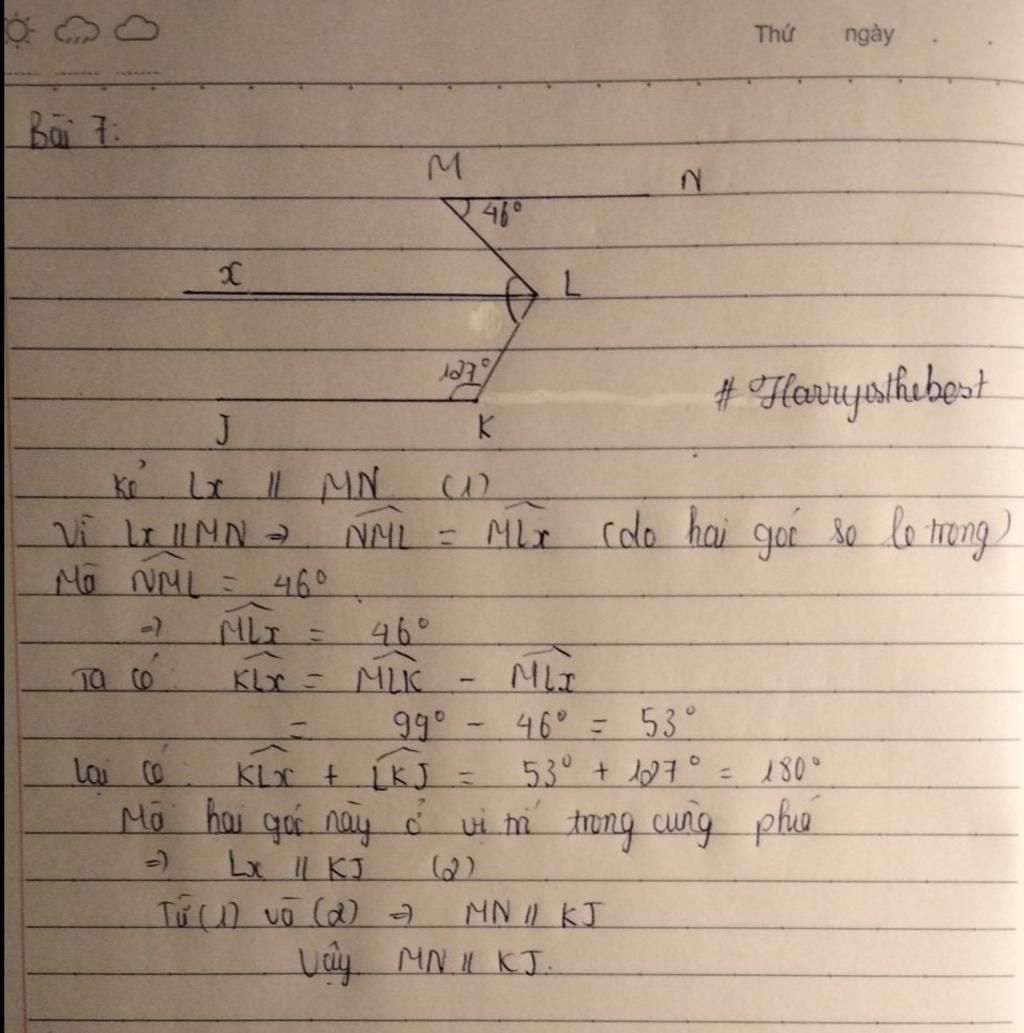 Thứ ngày . .
Bài 7:
M N
46°
x L
127°
J K
#Harryisthebest
Kẻ Lx // MN (1)
Vì Lx // MN => NML = MLx (do hai góc so le trong)
Mà NML = 46°
=> MLx = 46°
Ta có: KLx = MLK - MLx
= 99° - 46° = 53°
Lại có: KLx + LKJ = 53° + 127° = 180°
Mà hai góc này ở vị trí trong cùng phía
=> Lx // KJ (2)
Từ (1) và (2) => MN // KJ
Vậy MN // KJ.